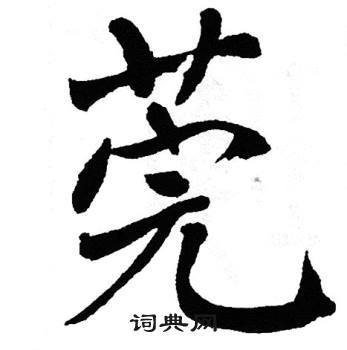 莞
词典网